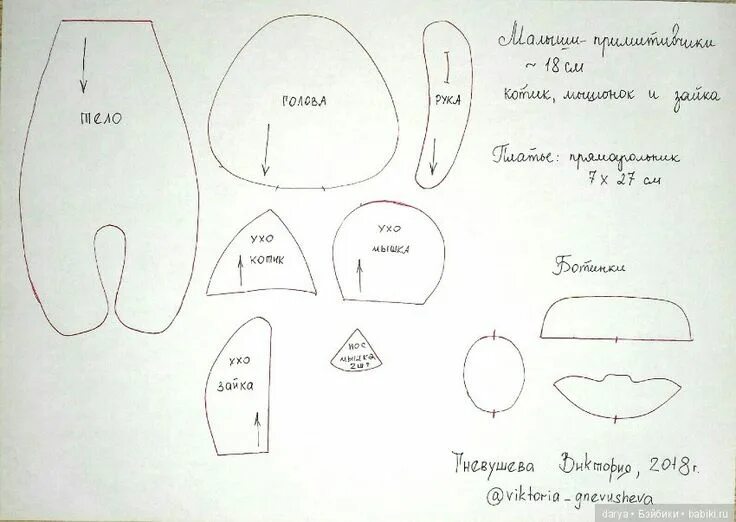 Малыши-примитивчики
~ 18 см
котик, мышонок и зайка
Платье: прямоугольник
7 х 27 см
ТЕЛО
ГОЛОВА
РУКА
УХО
КОТИК
УХО
МЫШКА
Ботинки
УХО
ЗАЙКА
НОС
МЫШКА
2 шт
Гневушева Виктория, 2018 г.
@viktoria_gnevusheva
darya • Бэйбики • babiki.ru